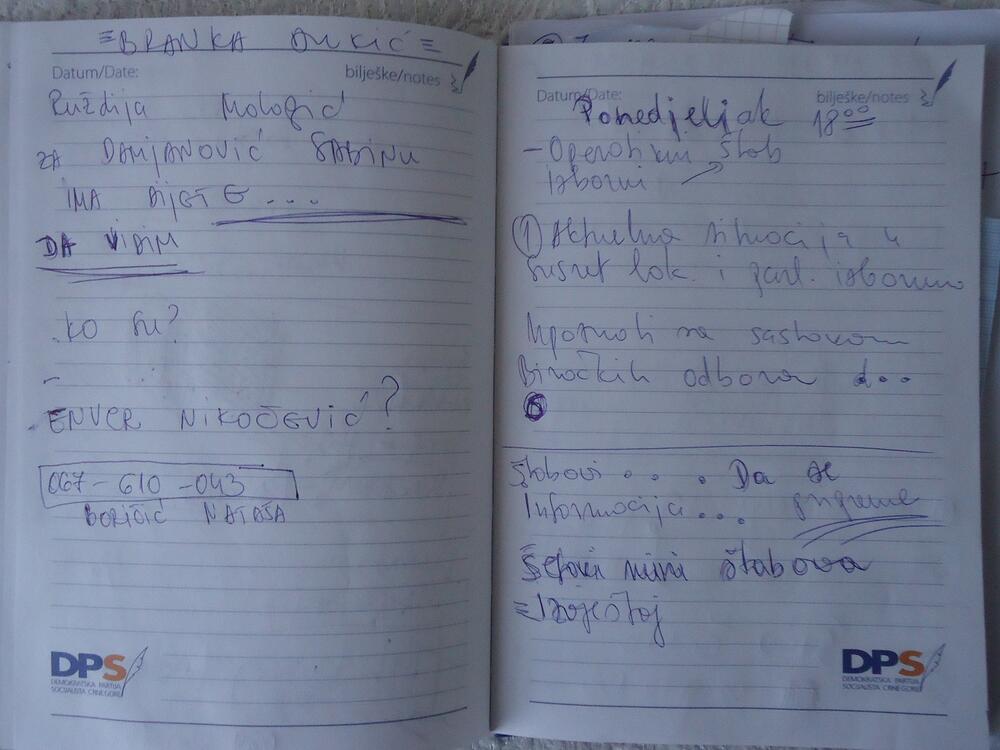 ≡BRANKA ĐUKIĆ≡
Datum/Date: bilješke/notes
Ruždija
ZA DAMJANOVIĆ SABINU
IMA DIJETE...
DA VIDIM
KO SU?
ENVER NIKOČEVIĆ?
067-610-043
BORIČIĆ NATAŠA
DPS
DEMOKRATSKA PARTIJA
SOCIJALISTA CRNE GORE
Datum/Date: bilješke/notes
Ponedjeljak 18°°
- Operativni štab
Izborni
① Aktuelna situacija u
susret lok. i parl. izborima
Upoznati sa sastavom
Biračkih odbora d...
Štabovi . . . . Da se
Informacija... pripreme
Šefovi mini štabova
=Izvještaj
DPS
DEMOKRATSKA PARTIJA
SOCIJALISTA CRNE GORE